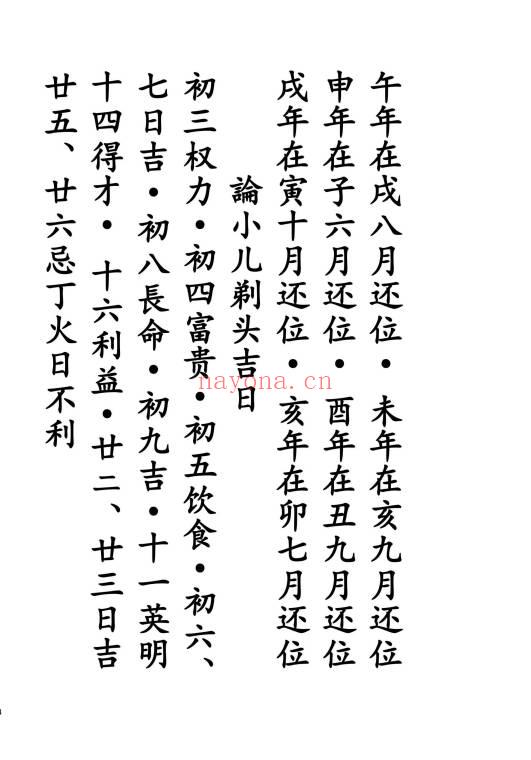 午年在戌八月还位·未年在亥九月还位
申年在子六月还位·酉年在丑九月还位
戌年在寅十月还位·亥年在卯七月还位
論小儿剃头吉日
初三权力·初四富贵·初五饮食·初六、
七日吉·初八長命·初九吉·十一英明
十四得才·十六利益·廿二、廿三日吉
廿五、廿六忌丁火日不利
nayona.cn